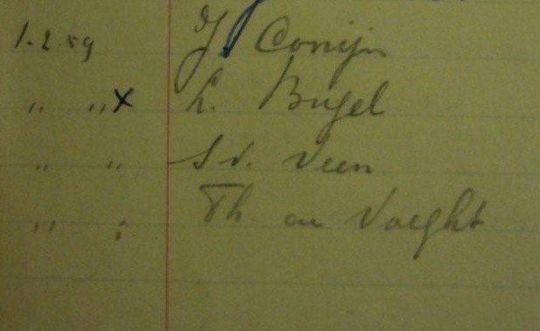 1.2.59 J. Conijn
" " x L. Bugel
" " S v. Veen
" " Th. Voeght